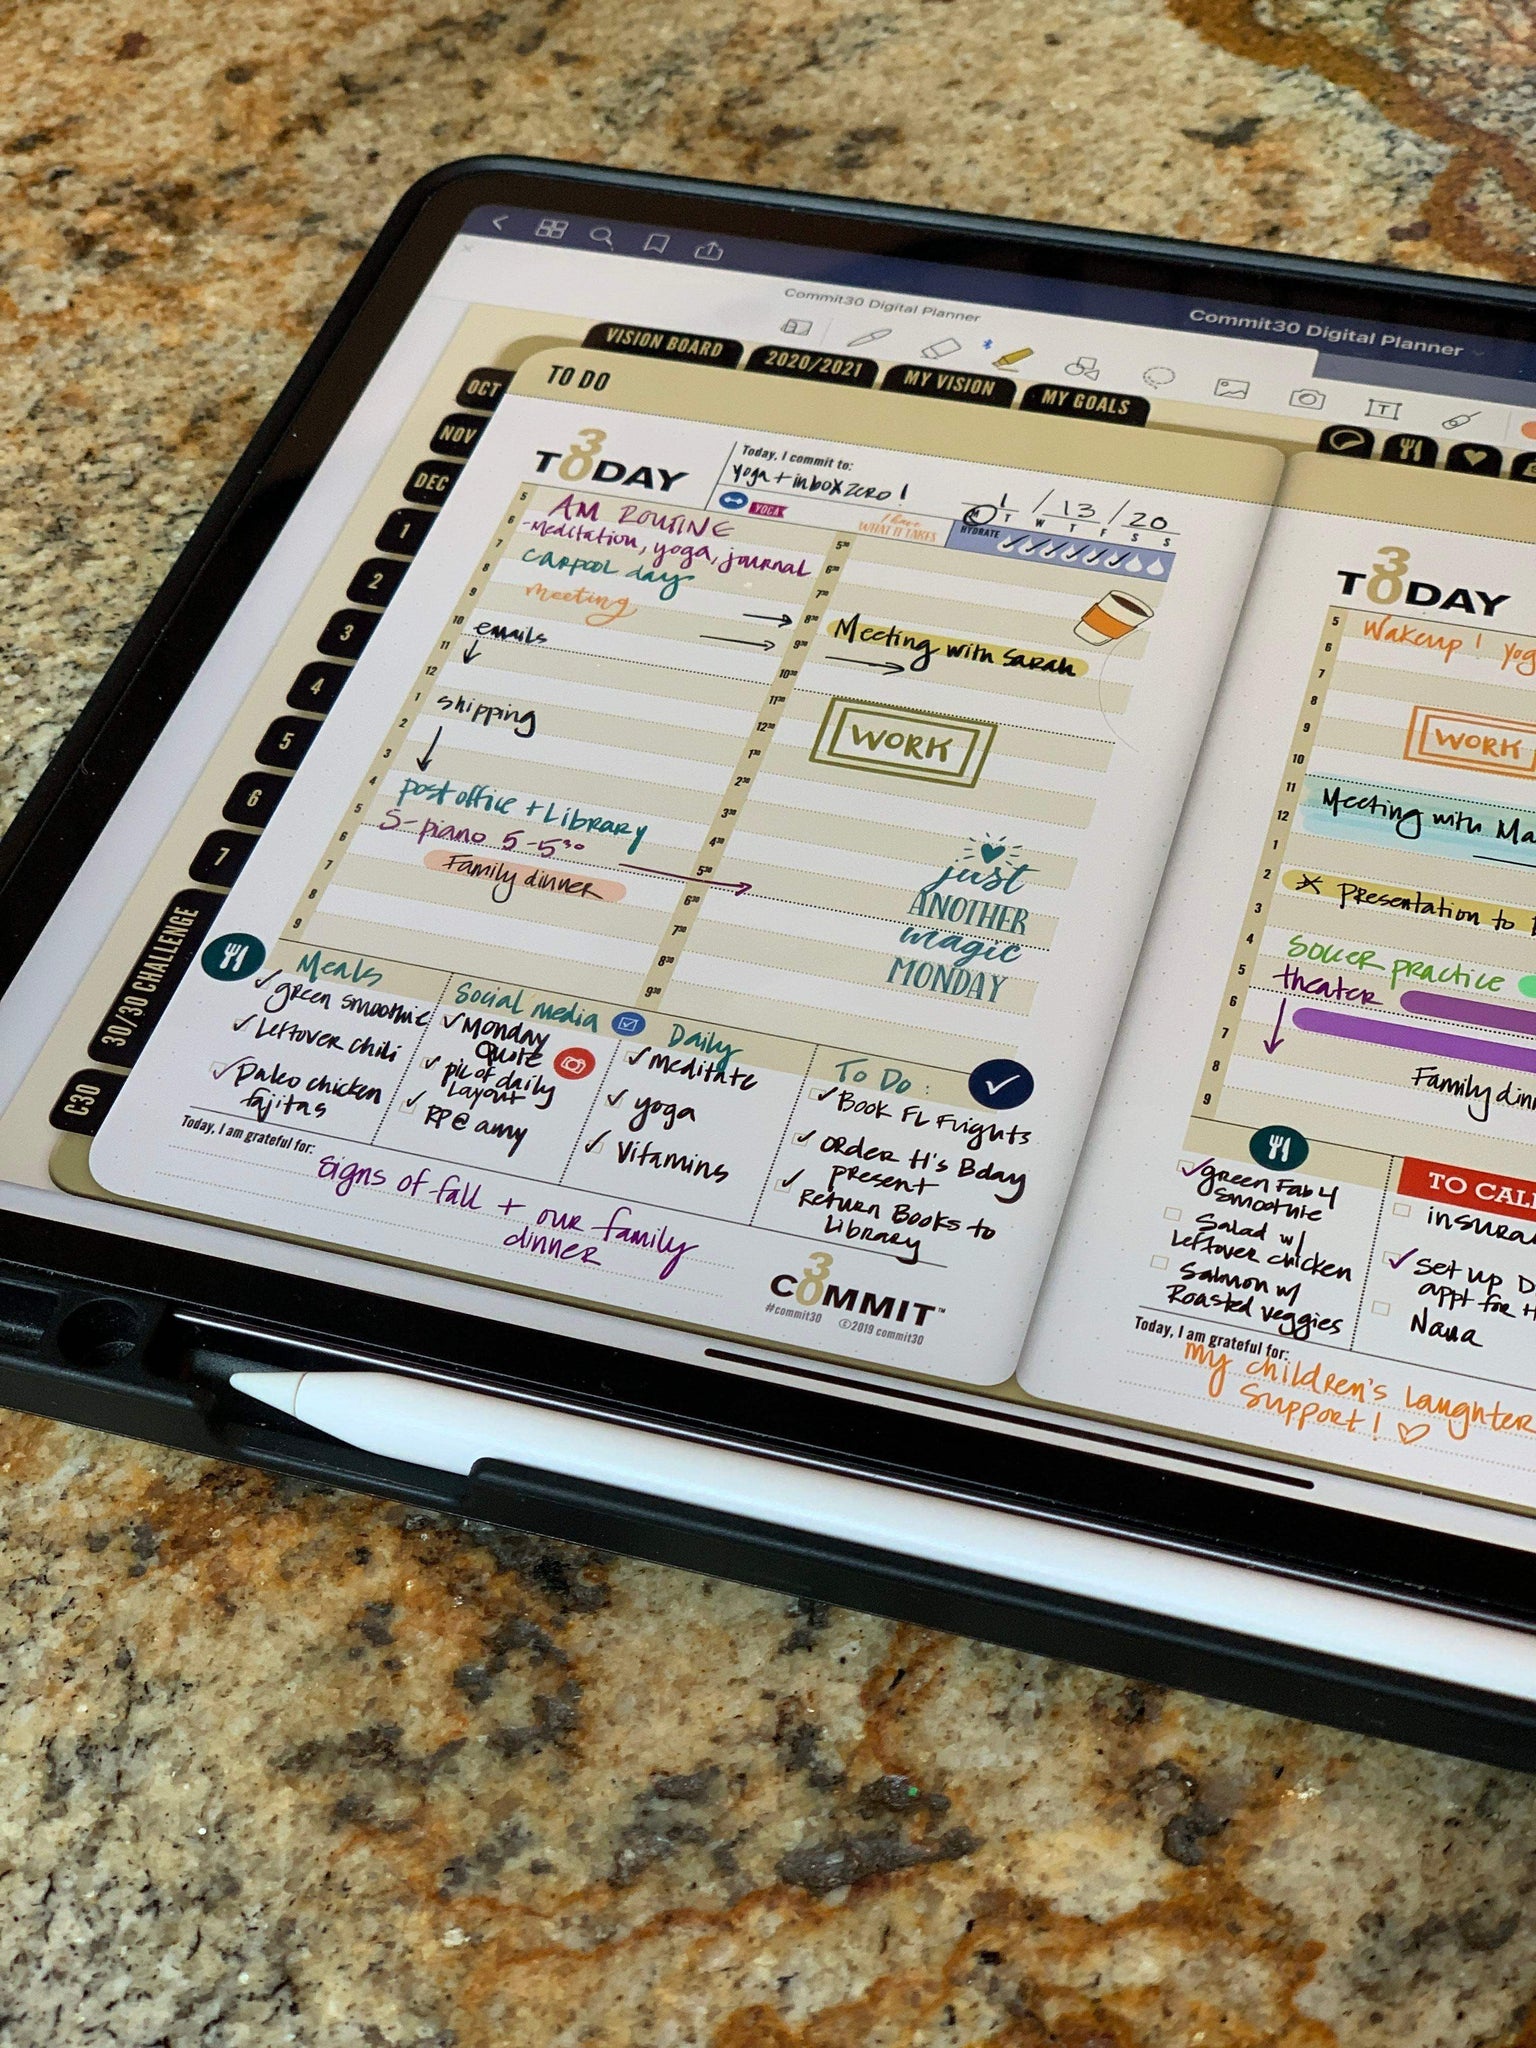 Commit30 Digital Planner
Commit30 Digital Planner
VISION BOARD
2020/2021
MY VISION
MY GOALS
TO DO
OCT
NOV
DEC
1
2
3
4
5
6
7
30/30 CHALLENGE
C30
30
TODAY
Today, I commit to:
yoga + inbox zero!
YOGA
I have
WHAT IT TAKES
1 / 13 / 20
M T W T F S S
HYDRATE
5
6
7
8
9
10
11
12
1
2
3
4
5
6
7
8
9
AM ROUTINE
-Meditation, yoga, journal
carpool day
meeting
emails
shipping
post office + Library
S-piano 5-5³⁰
Family dinner
5³⁰
6³⁰
7³⁰
8³⁰
9³⁰
10³⁰
11³⁰
12³⁰
1³⁰
2³⁰
3³⁰
4³⁰
5³⁰
6³⁰
7³⁰
8³⁰
9³⁰
Meeting with Sarah
WORK
just
ANOTHER
magic
MONDAY
Meals
green smoothie
Leftover chili
paleo chicken
fajitas
Social media
Monday
Quote
pic of daily
Layout
RP@amy
Daily
Meditate
yoga
Vitamins
To Do:
Book FL Flights
order H's Bday
present
Return Books to
Library
Today, I am grateful for:
signs of fall + our family
dinner
30
COMMIT™
#commit30 ©2019 commit30
30
TODAY
5
6
7
8
9
10
11
12
1
2
3
4
5
6
7
8
9
Wakeup! Yog
WORK
Meeting with Ma
* presentation to
soccer practice
theater
Family din
green Fab 4
smoothie
Salad w/
Leftover chicken
Salmon w/
Roasted veggies
TO CAL
insura
set up D
appt for H
Nana
Today, I am grateful for:
my children's laughter
support! ♡